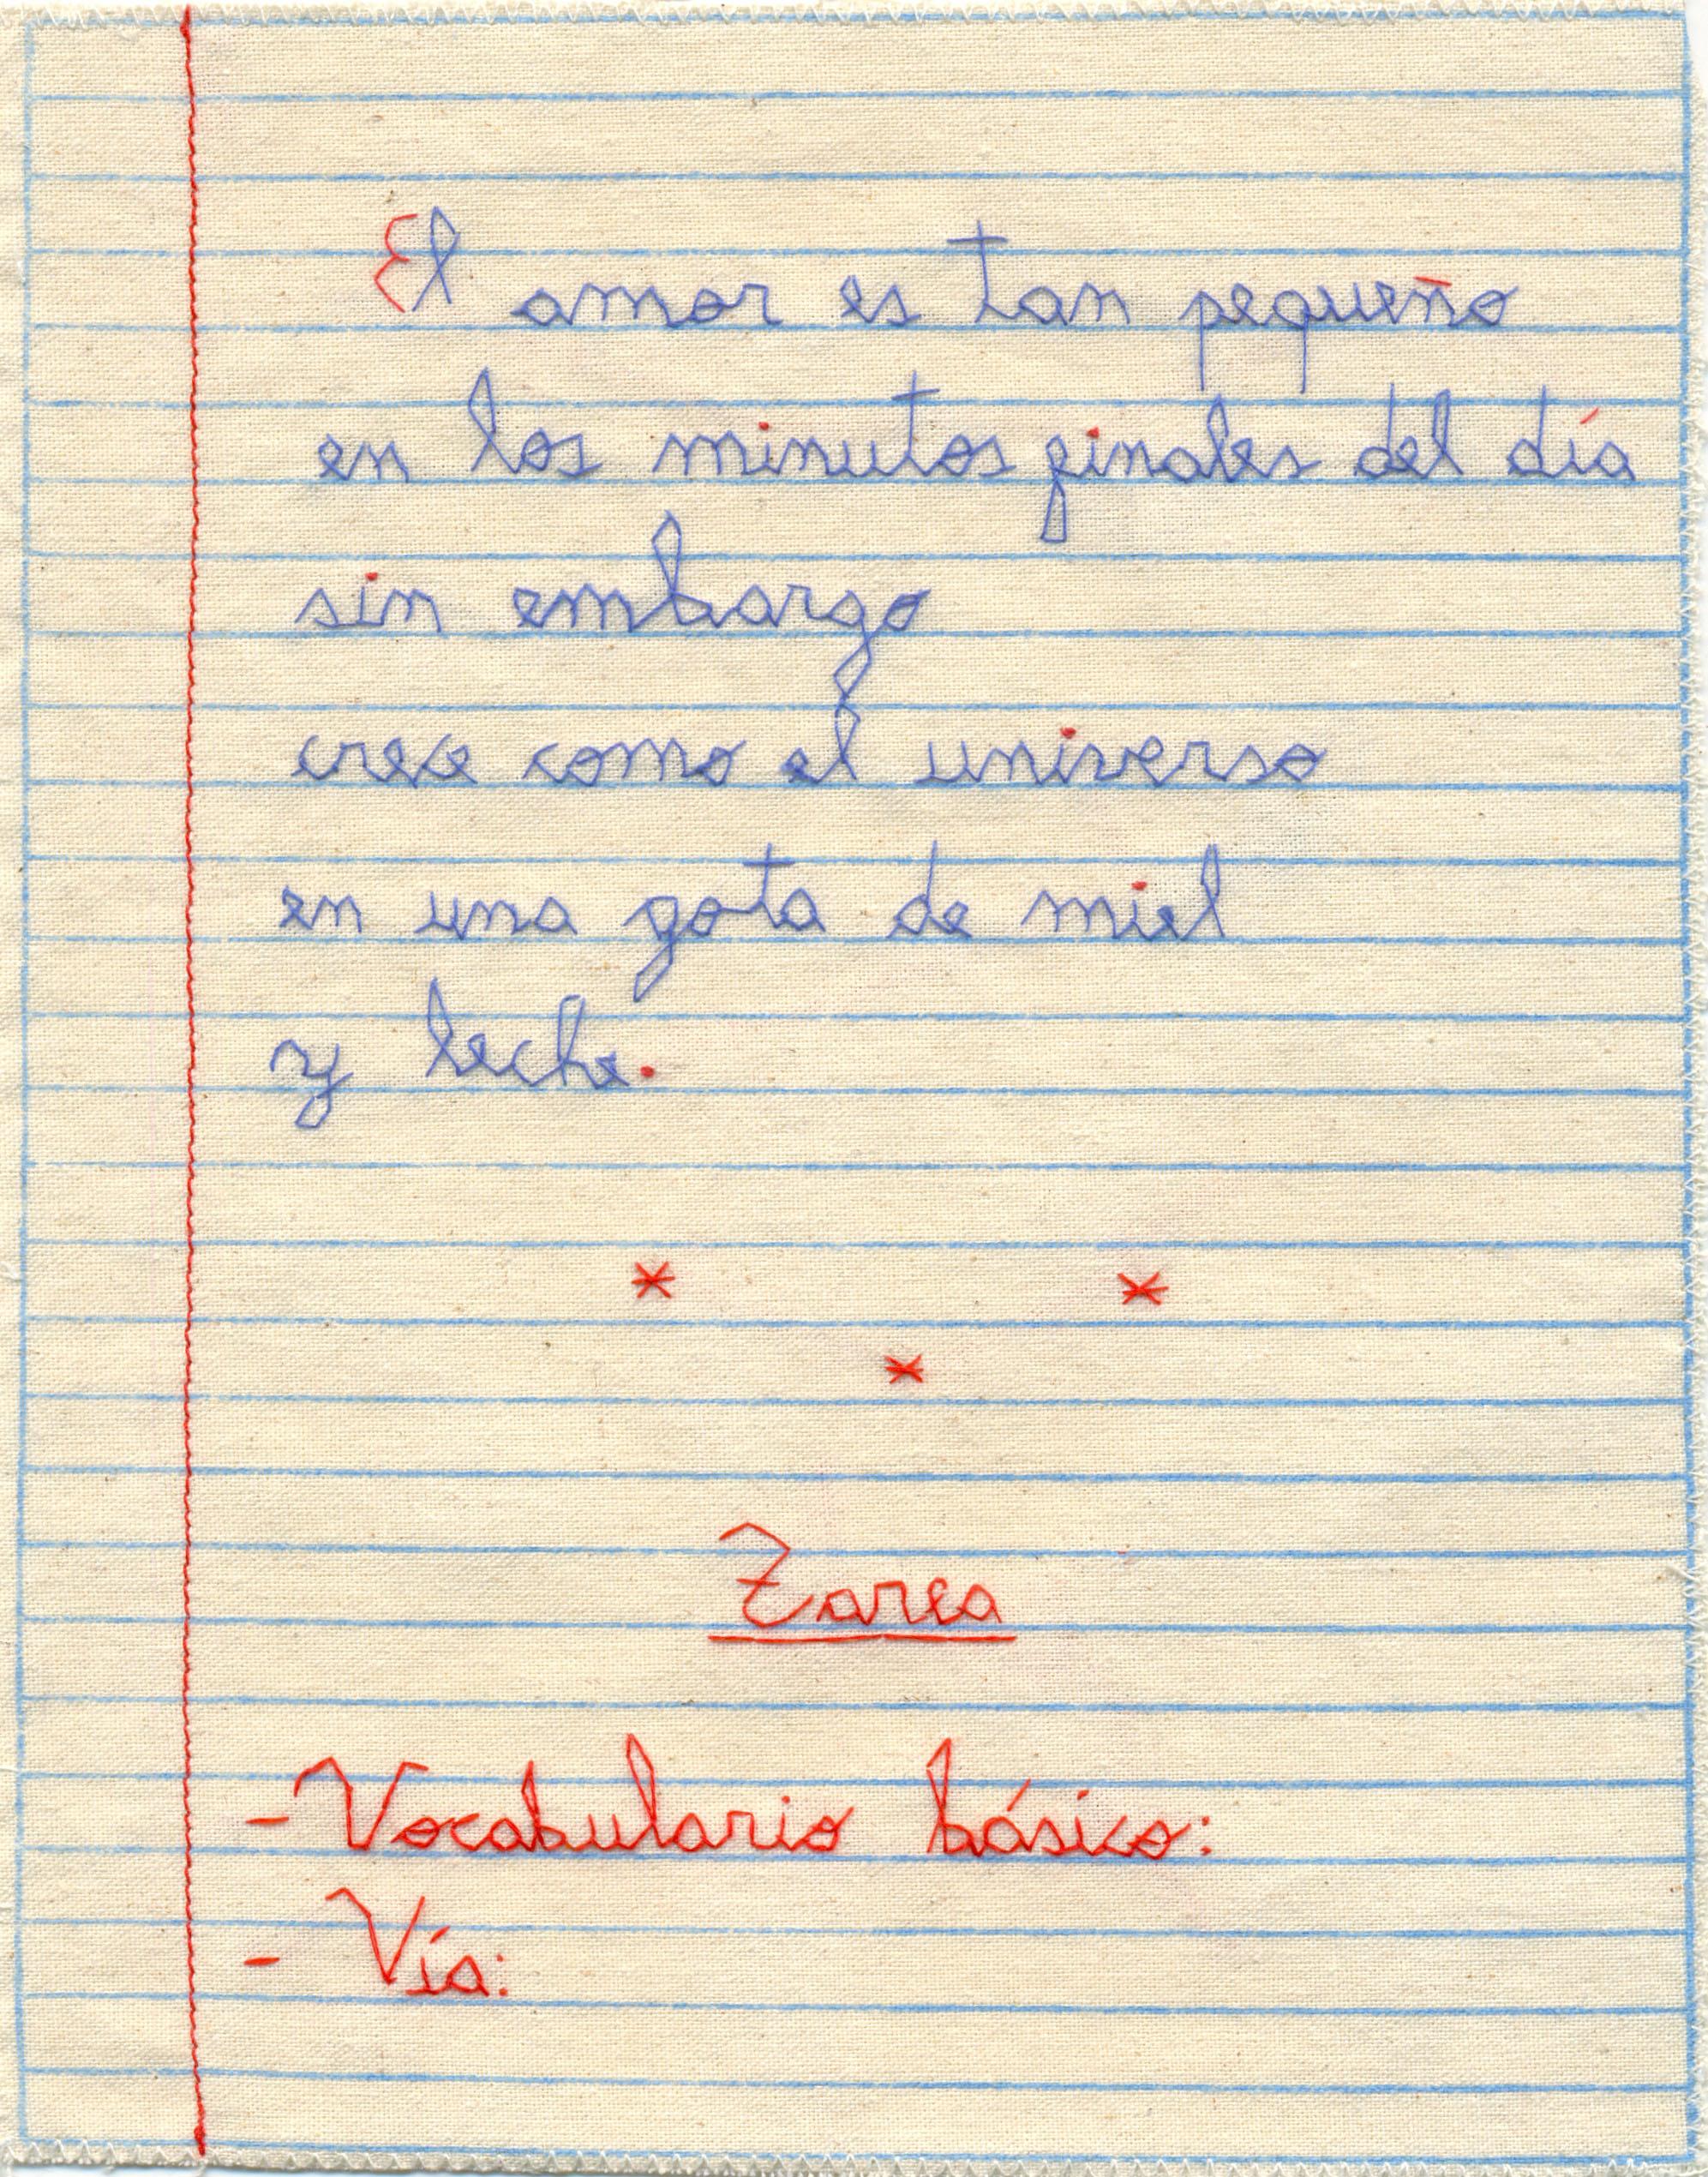 El amor es tan pequeño
en los minutos finales del día
sin embargo
crece como el universo
en una gota de miel
y leche.
* *
*
Tarea
- Vocabulario básico:
- Vía: